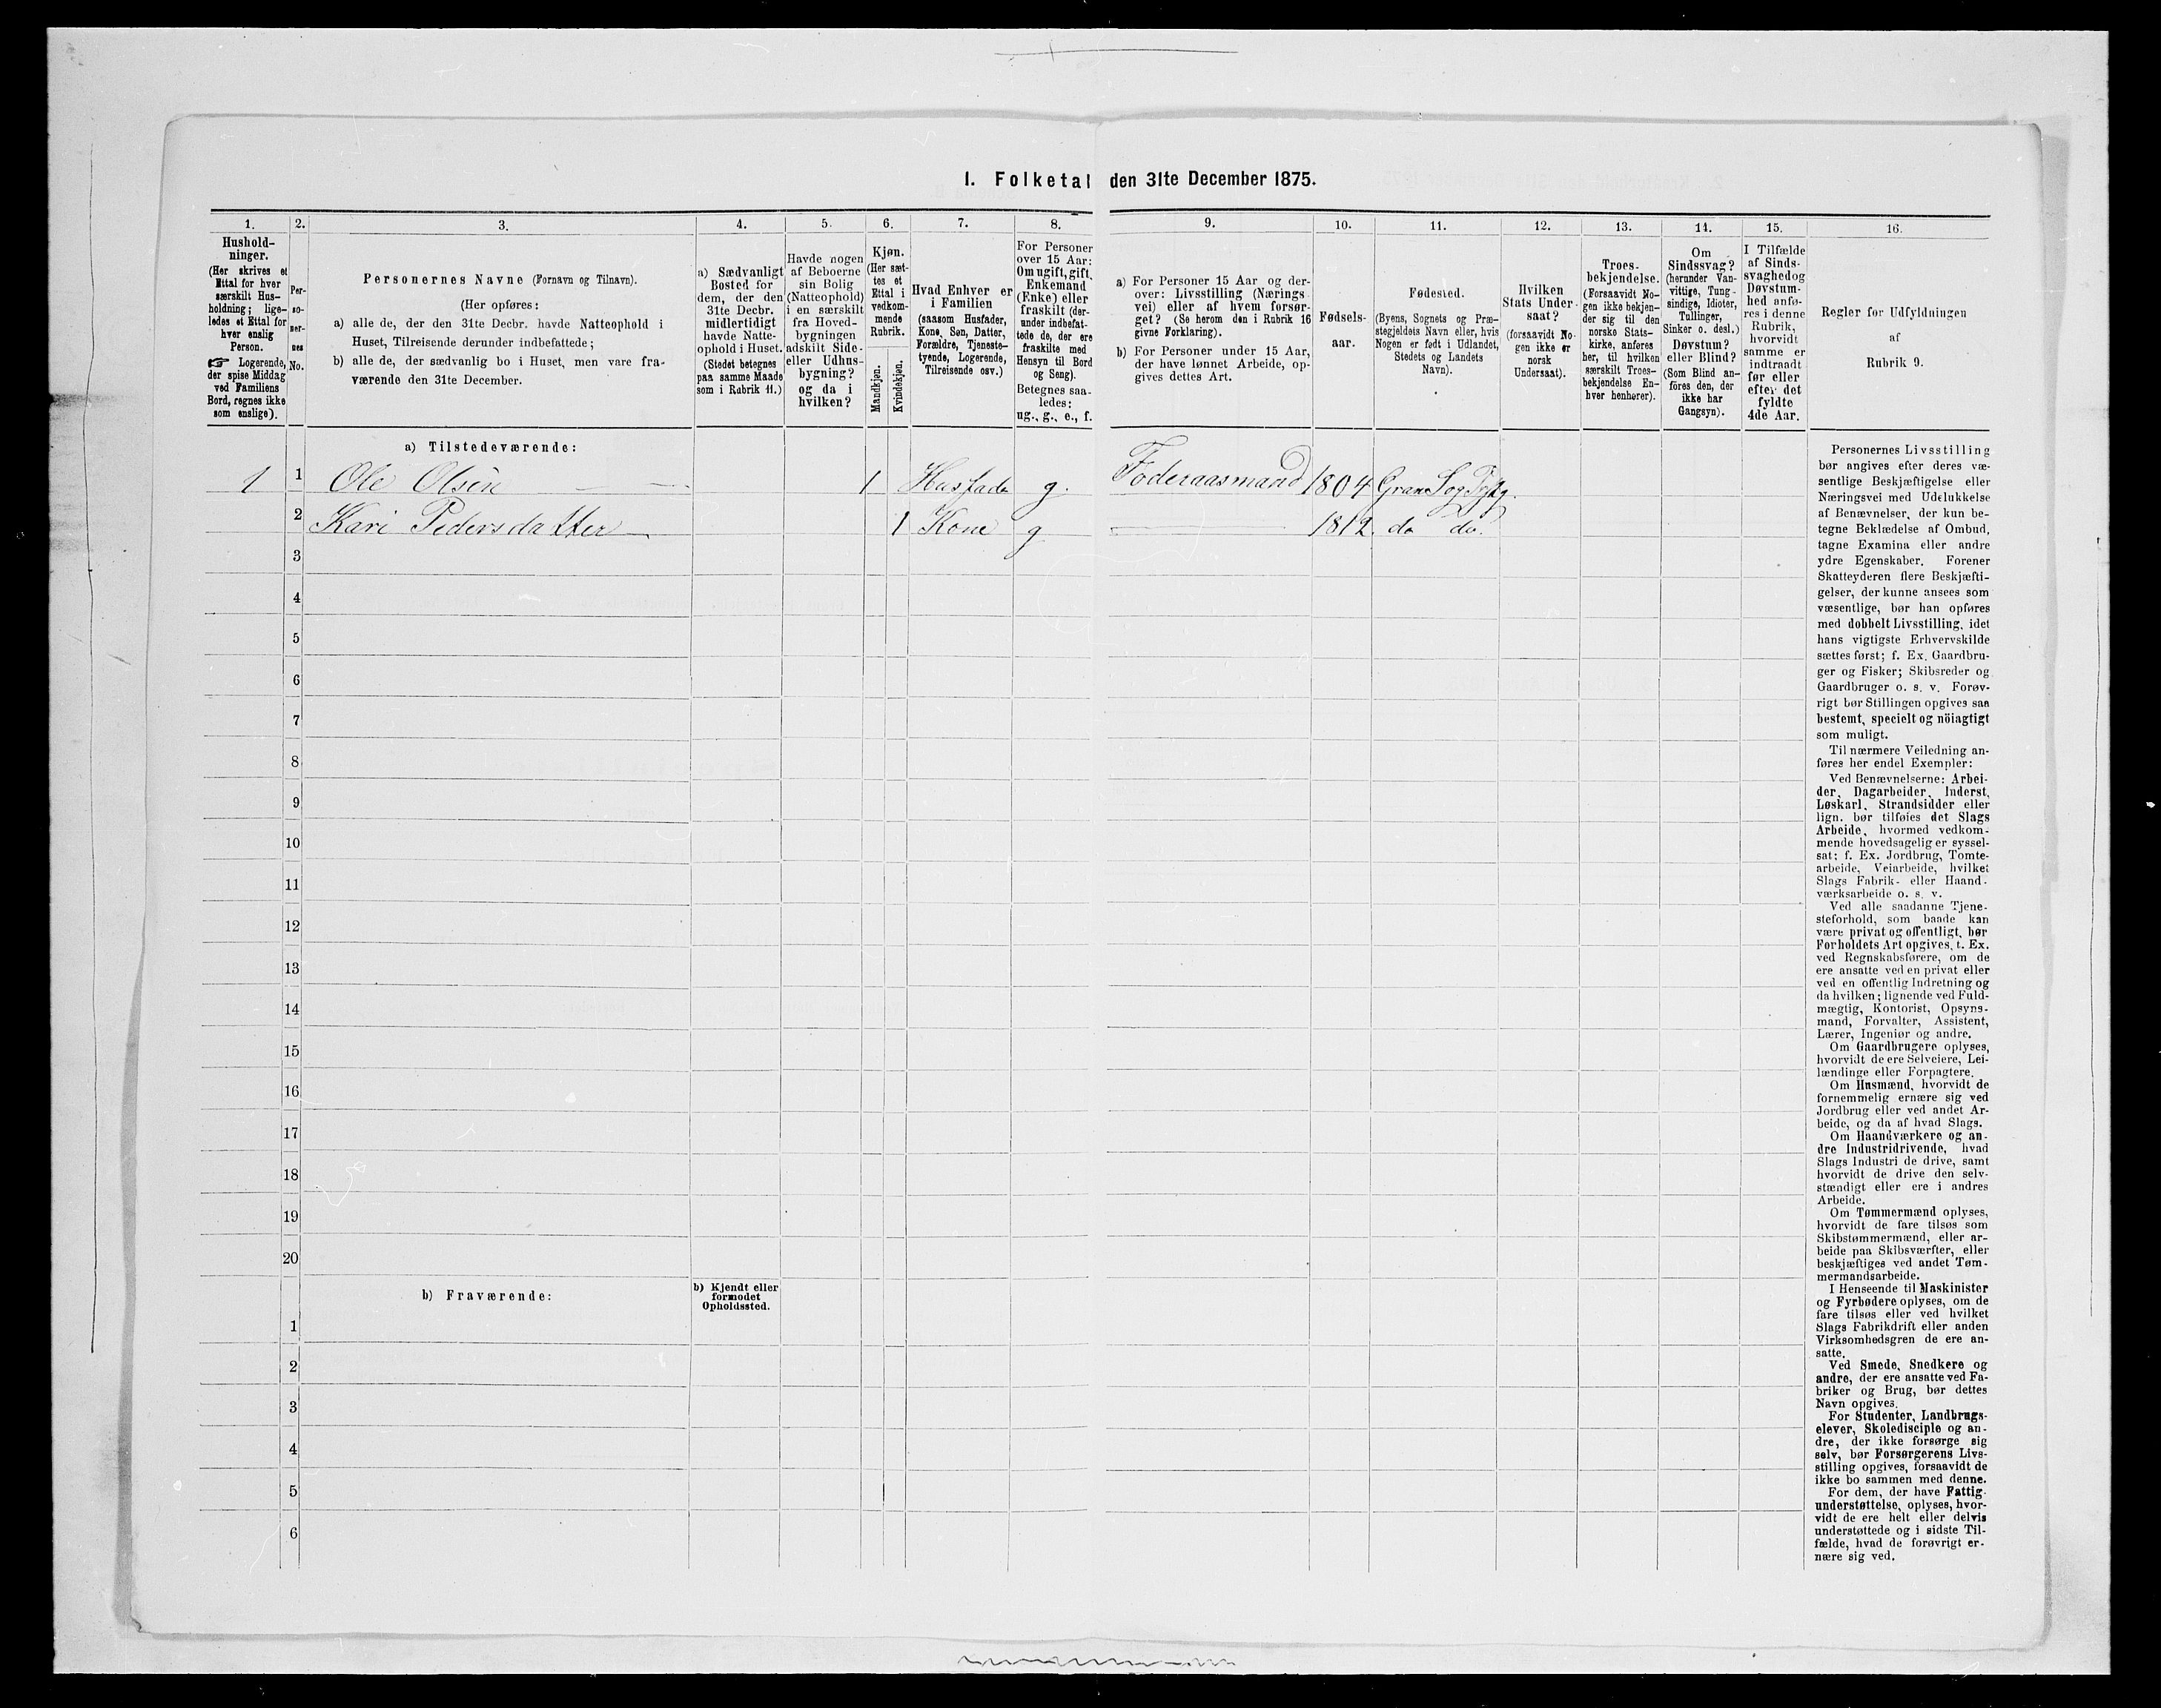 I. Folketal den 31te December 1875.
1.
Hushold-
ninger.
(Her skrives et
Ettal for hver
særskilt Hus-
holdning; lige-
ledes et Ettal for
hver enslig
Person.
☞ Logerende,
der spise Middag
ved Familiens
Bord, regnes ikke
som enslige).
2.
Per-
so-
ner-
nes
No.
3.
Personernes Navne (Fornavn og Tilnavn).
(Her opføres:
a) alle de, der den 31te Decbr. havde Natteophold i
Huset, Tilreisende derunder indbefattede;
b) alle de, der sædvanlig bo i Huset, men vare fra-
værende den 31te December.
4.
a) Sædvanligt
Bosted for
dem, der den
31te Decbr.
midlertidigt
havde Natte-
ophold i Huset.
(Stedet betegnes
paa samme Maade
som i Rubrik 11.)
5.
Havde nogen
af Beboerne
sin Bolig
(Natteophold)
i en særskilt
fra Hoved-
bygningen
adskilt Side-
eller Udhus-
bygning?
og da i
hvilken?
6.
Kjøn.
(Her sæt-
tes et
Ettal i
vedkom-
mende
Rubrik.
Mandkjøn.
Kvindekjøn.
7.
Hvad Enhver er
i Familien
(saasom Husfader,
Kone, Søn, Datter,
Forældre, Tjeneste-
tyende, Logerende,
Tilreisende osv.)
8.
For Personer
over 15 Aar:
Om ugift, gift,
Enkemand
(Enke) eller
fraskilt (der-
under indbefat-
tede de, der ere
fraskilte med
Hensyn til Bord
og Seng).
Betegnes saa-
ledes:
ug., g., e., f.
9.
a) For Personer 15 Aar og der-
over: Livsstilling (Nærings-
vei) eller af hvem forsør-
get? (Se herom den i Rubrik 16
givne Forklaring).
b) For Personer under 15 Aar,
der have lønnet Arbeide, op-
gives dettes Art.
10.
Fødsels-
aar.
11.
Fødested.
(Byens, Sognets og Præ-
stegjeldets Navn eller, hvis
Nogen er født i Udlandet,
Stedets og Landets
Navn).
12.
Hvilken
Stats Under-
saat?
(forsaavidt No-
gen ikke er
norsk
Undersaat).
13.
Troes-
bekjendelse.
(Forsaavidt No-
gen ikke bekjen-
der sig til den
norske Stats-
kirke, anføres
her, til hvilken
særskilt Troes-
bekjendelse En-
hver henhører).
14.
Om
Sindssvag?
(herunder Van-
vittige, Tung-
sindige, Idioter,
Tullinger,
Sinker o. desl.)
Døvstum?
eller Blind?
(Som Blind an-
føres den, der
ikke har
Gangsyn).
15.
I Tilfælde
af Sinds-
svaghed og
Døvstum-
hed anfø-
res i denne
Rubrik,
hvorvidt
samme er
indtraadt
før eller
efter det
fyldte
4de Aar.
16.
Regler for Udfyldningen
af
Rubrik 9.
a) Tilstedeværende:
1 1 Ole Olsen 1 Husfader g. Føderaasmand 1804 Gran Sog Prstg.
2 Kari Pedersdatter 1 Kone g 1812. do do.
3
4
5
6
7
8
9
10
11
12
13
14
15
16
17
18
19
20
b) Fraværende:
b) Kjendt eller
formodet
Opholdssted.
1
2
3
4
5
6
Personernes Livsstilling
bør angives efter deres væ-
sentlige Beskjæftigelse eller
Næringsvei med Udelukkelse
af Benævnelser, der kun be-
tegne Beklædelse af Ombud,
tagne Examina eller andre
ydre Egenskaber. Forener
Skatteyderen flere Beskjæfti-
gelser, der kunne ansees som
væsentlige, bør han opføres
med dobbelt Livsstilling, idet
hans vigtigste Erhvervskilde
sættes først; f. Ex. Gaardbru-
ger og Fisker; Skibsreder og
Gaardbruger o. s. v. Forøv-
rigt bør Stillingen opgives saa
bestemt, specielt og nöiagtigt
som muligt.
Til nærmere Veiledning an-
føres her endel Exempler:
Ved Benævnelserne: Arbei-
der, Dagarbeider, Inderst,
Løskarl, Strandsidder eller
lign. bør tilføies det Slags
Arbeide, hvormed vedkom-
mende hovedsagelig er syssel-
sat; f. Ex. Jordbrug, Tomte-
arbeide, Veiarbeide, hvilket
Slags Fabrik- eller Haand-
værksarbeide o. s. v.
Ved alle saadanne Tjene-
steforhold, som baade kan
være privat og offentligt, bør
Forholdets Art opgives, t. Ex.
ved Regnskabsførere, om de
ere ansatte ved en privat eller
ved en offentlig Indretning og
da hvilken; lignende ved Fuld-
mægtig, Kontorist, Opsyns-
mand, Forvalter, Assistent,
Lærer, Ingeniør og andre.
Om Gaardbrugere oplyses,
hvorvidt de ere Selveiere, Lei-
lændinge eller Forpagtere.
Om Husmænd, hvorvidt de
fornemmelig ernære sig ved
Jordbrug eller ved andet Ar-
beide, og da af hvad Slags.
Om Haandværkere og an-
dre Industridrivende, hvad
Slags Industri de drive, samt
hvorvidt de drive den selv-
stændigt eller ere i andres
Arbeide.
Om Tømmermænd oplyses,
hvorvidt de fare tilsøs som
Skibstømmermænd, eller ar-
beide paa Skibsværfter, eller
beskjæftiges ved andet Tøm-
mermandsarbeide.
I Henseende til Maskinister
og Fyrbødere oplyses, om de
fare tilsøs eller ved hvilket
Slags Fabrikdrift eller anden
Virksomhedsgren de ere an-
satte.
Ved Smede, Snedkere og
andre, der ere ansatte ved Fa-
briker og Brug, bør dettes
Navn opgives.
For Studenter, Landbrugs-
elever, Skoledisciple og an-
dre, der ikke forsørge sig
selv, bør Forsørgerens Livs-
stilling opgives, forsaavidt de
ikke bo sammen med denne.
For dem, der have Fattig-
understøttelse, oplyses, hvor-
vidt de ere helt eller delvis
understøttede og i sidste Til-
fælde, hvad de forøvrigt er-
nære sig ved.